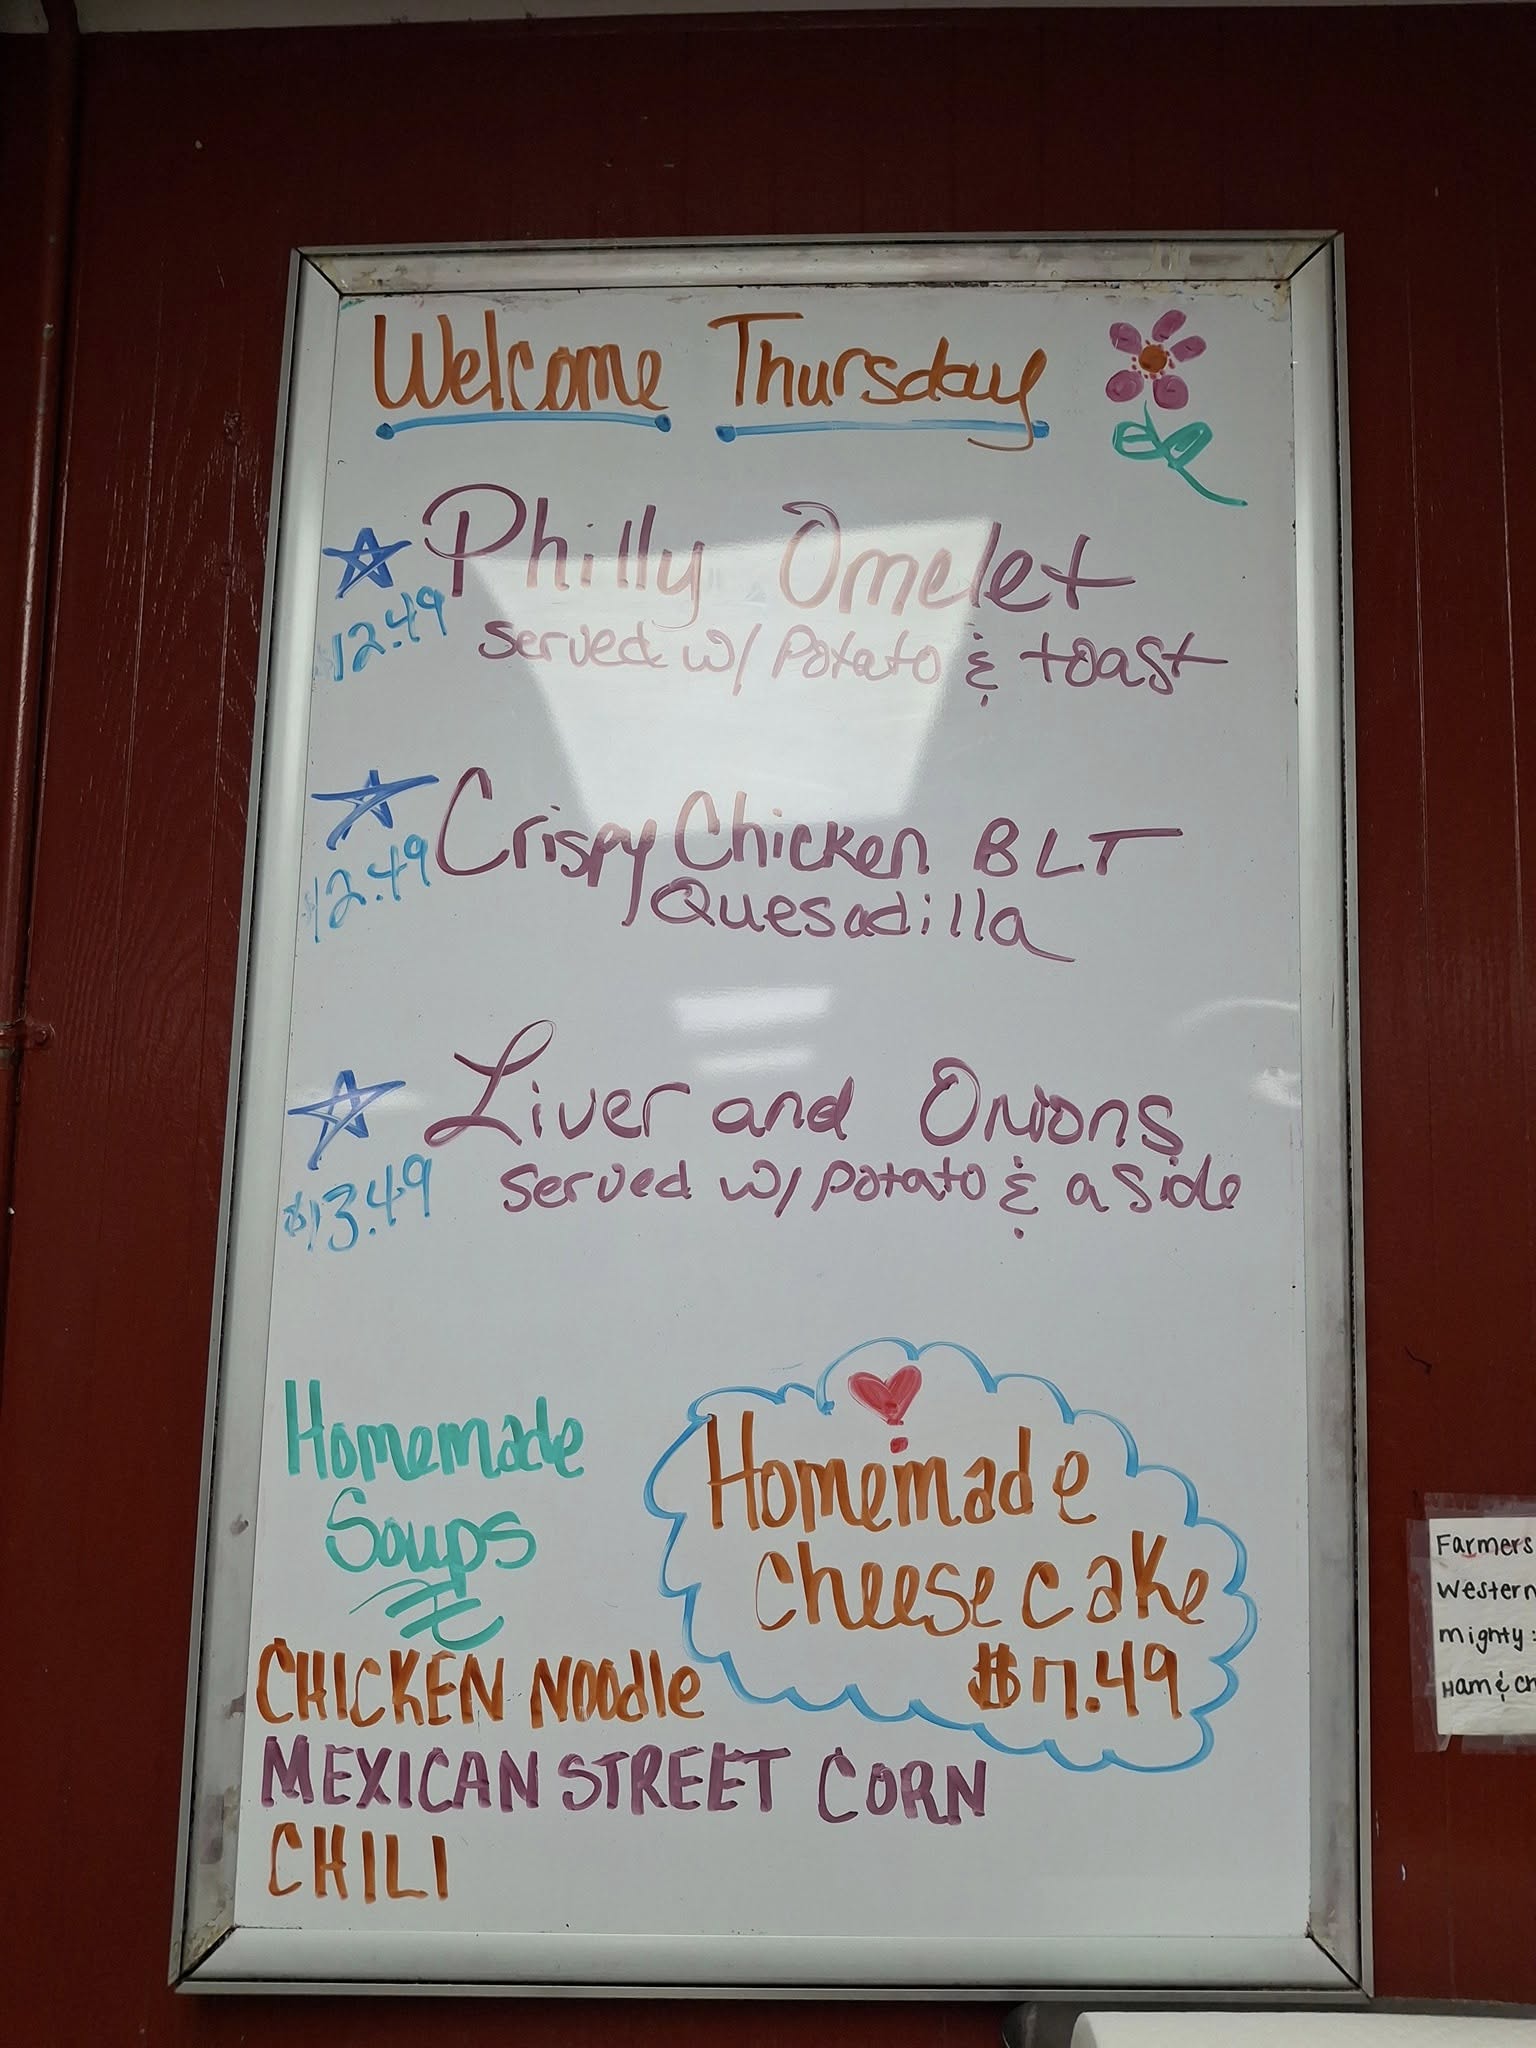 Welcome Thursday
Philly Omelet
$12.49
served w/ potato & toast
Crispy Chicken BLT
$12.49
Quesadilla
Liver and Onions
served w/ potato & a side
$13.49
Homemade
Soups
Homemade
Cheesecake
$7.49
CHICKEN NOODLE
MEXICAN STREET CORN
CHILI
Farmers
Western
mighty:
Ham & Ch